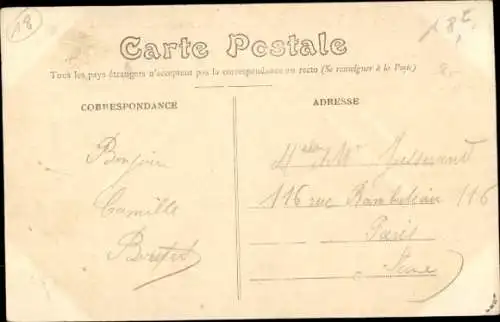 18
8E
Carte Postale
Tous les pays étrangers n'acceptent pas la correspondance au recto (Se renseigner à la Poste)
CORRESPONDANCE
ADRESSE
Bonjour
Camille
116 rue Rambuteau 116
Paris
Seine